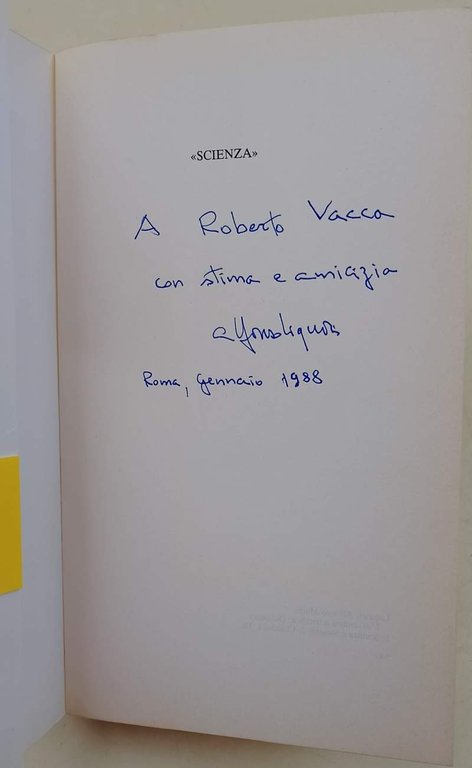 «SCIENZA»
A Roberto Vacca
con stima e amicizia
Roma, gennaio 1988